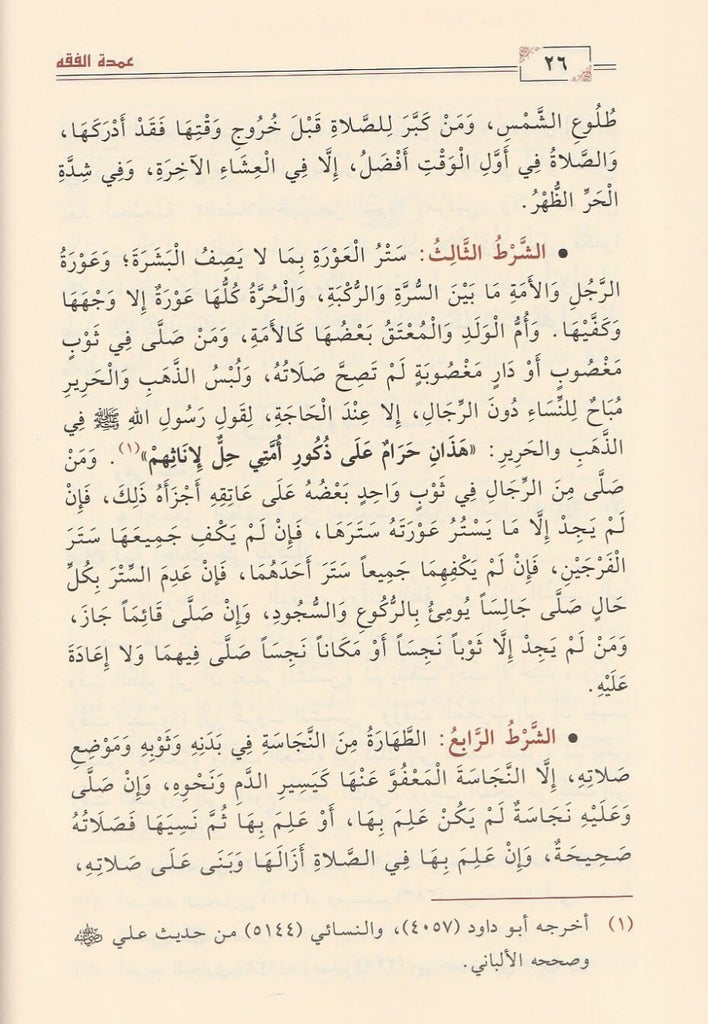 عمدة الفقه
٢٦
طُلُوعِ الشَّمْسِ، وَمَنْ كَبَّرَ لِلصَّلاةِ قَبْلَ خُرُوجِ وَقْتِهَا فَقَدْ أَدْرَكَهَا،
وَالصَّلاةُ فِي أَوَّلِ الْوَقْتِ أَفْضَلُ، إِلَّا فِي الْعِشَاءِ الآخِرَةِ، وَفِي شِدَّةِ
الْحَرِّ الظُّهْرُ.
• الشَّرْطُ الثَّالِثُ: سَتْرُ الْعَوْرَةِ بِمَا لا يَصِفُ الْبَشَرَةَ؛ وَعَوْرَةُ
الرَّجُلِ وَالأَمَةِ مَا بَيْنَ السُّرَّةِ وَالرُّكْبَةِ، وَالْحُرَّةُ كُلُّهَا عَوْرَةٌ إِلا وَجْهَهَا
وَكَفَّيْهَا. وَأُمُّ الْوَلَدِ وَالْمُعْتَقُ بَعْضُهَا كَالأَمَةِ، وَمَنْ صَلَّى فِي ثَوْبٍ
مَغْصُوبٍ أَوْ دَارٍ مَغْصُوبَةٍ لَمْ تَصِحَّ صَلَاتُهُ، وَلُبْسُ الذَّهَبِ وَالْحَرِيرِ
مُبَاحٌ لِلنِّسَاءِ دُونَ الرِّجَالِ، إِلا عِنْدَ الْحَاجَةِ، لِقَولِ رَسُولِ اللهِ ﷺ فِي
الذَّهَبِ والحَرِيرِ: «هَذَانِ حَرَامٌ عَلَى ذُكُورِ أُمَّتِي حِلٌّ لِإِنَاثِهِمْ»(١). وَمَنْ
صَلَّى مِنَ الرِّجَالِ فِي ثَوْبٍ وَاحِدٍ بَعْضُهُ عَلَى عَاتِقِهِ أَجْزَأَهُ ذَلِكَ، فَإِنْ
لَمْ يَجِدْ إِلَّا مَا يَسْتُرُ عَوْرَتَهُ سَتَرَهَا، فَإِنْ لَمْ يَكْفِ جَمِيعَهَا سَتَرَ
الْفَرْجَيْنِ، فَإِنْ لَمْ يَكْفِهِمَا جَمِيعاً سَتَرَ أَحَدَهُمَا، فَإِنْ عَدِمَ السِّتْرَ بِكُلِّ
حَالٍ صَلَّى جَالِسَاً يُومِئُ بِالرُّكُوعِ وَالسُّجُودِ، وَإِنْ صَلَّى قَائِمَاً جَازَ،
وَمَنْ لَمْ يَجِدْ إِلَّا ثَوْباً نَجِسَاً أَوْ مَكَاناً نَجِسَاً صَلَّى فِيهِمَا وَلا إِعَادَةَ
عَلَيْهِ.
• الشَّرْطُ الرَّابِعُ: الطَّهَارَةُ مِنَ النَّجَاسَةِ فِي بَدَنِهِ وَثَوْبِهِ وَمَوْضِعِ
صَلاتِهِ، إِلَّا النَّجَاسَةَ الْمَعْفُوَّ عَنْهَا كَيَسِيرِ الدَّمِ وَنَحْوِهِ، وَإِنْ صَلَّى
وَعَلَيْهِ نَجَاسَةٌ لَمْ يَكُنْ عَلِمَ بِهَا، أَوْ عَلِمَ بِهَا ثُمَّ نَسِيَهَا فَصَلَاتُهُ
صَحِيحَةٌ، وَإِنْ عَلِمَ بِهَا فِي الصَّلاةِ أَزَالَهَا وَبَنَى عَلَى صَلاتِهِ،
(١) أخرجه أبو داود (٤٠٥٧)، والنسائي (٥١٤٤) من حديث علي رضي الله عنه
وصححه الألباني.